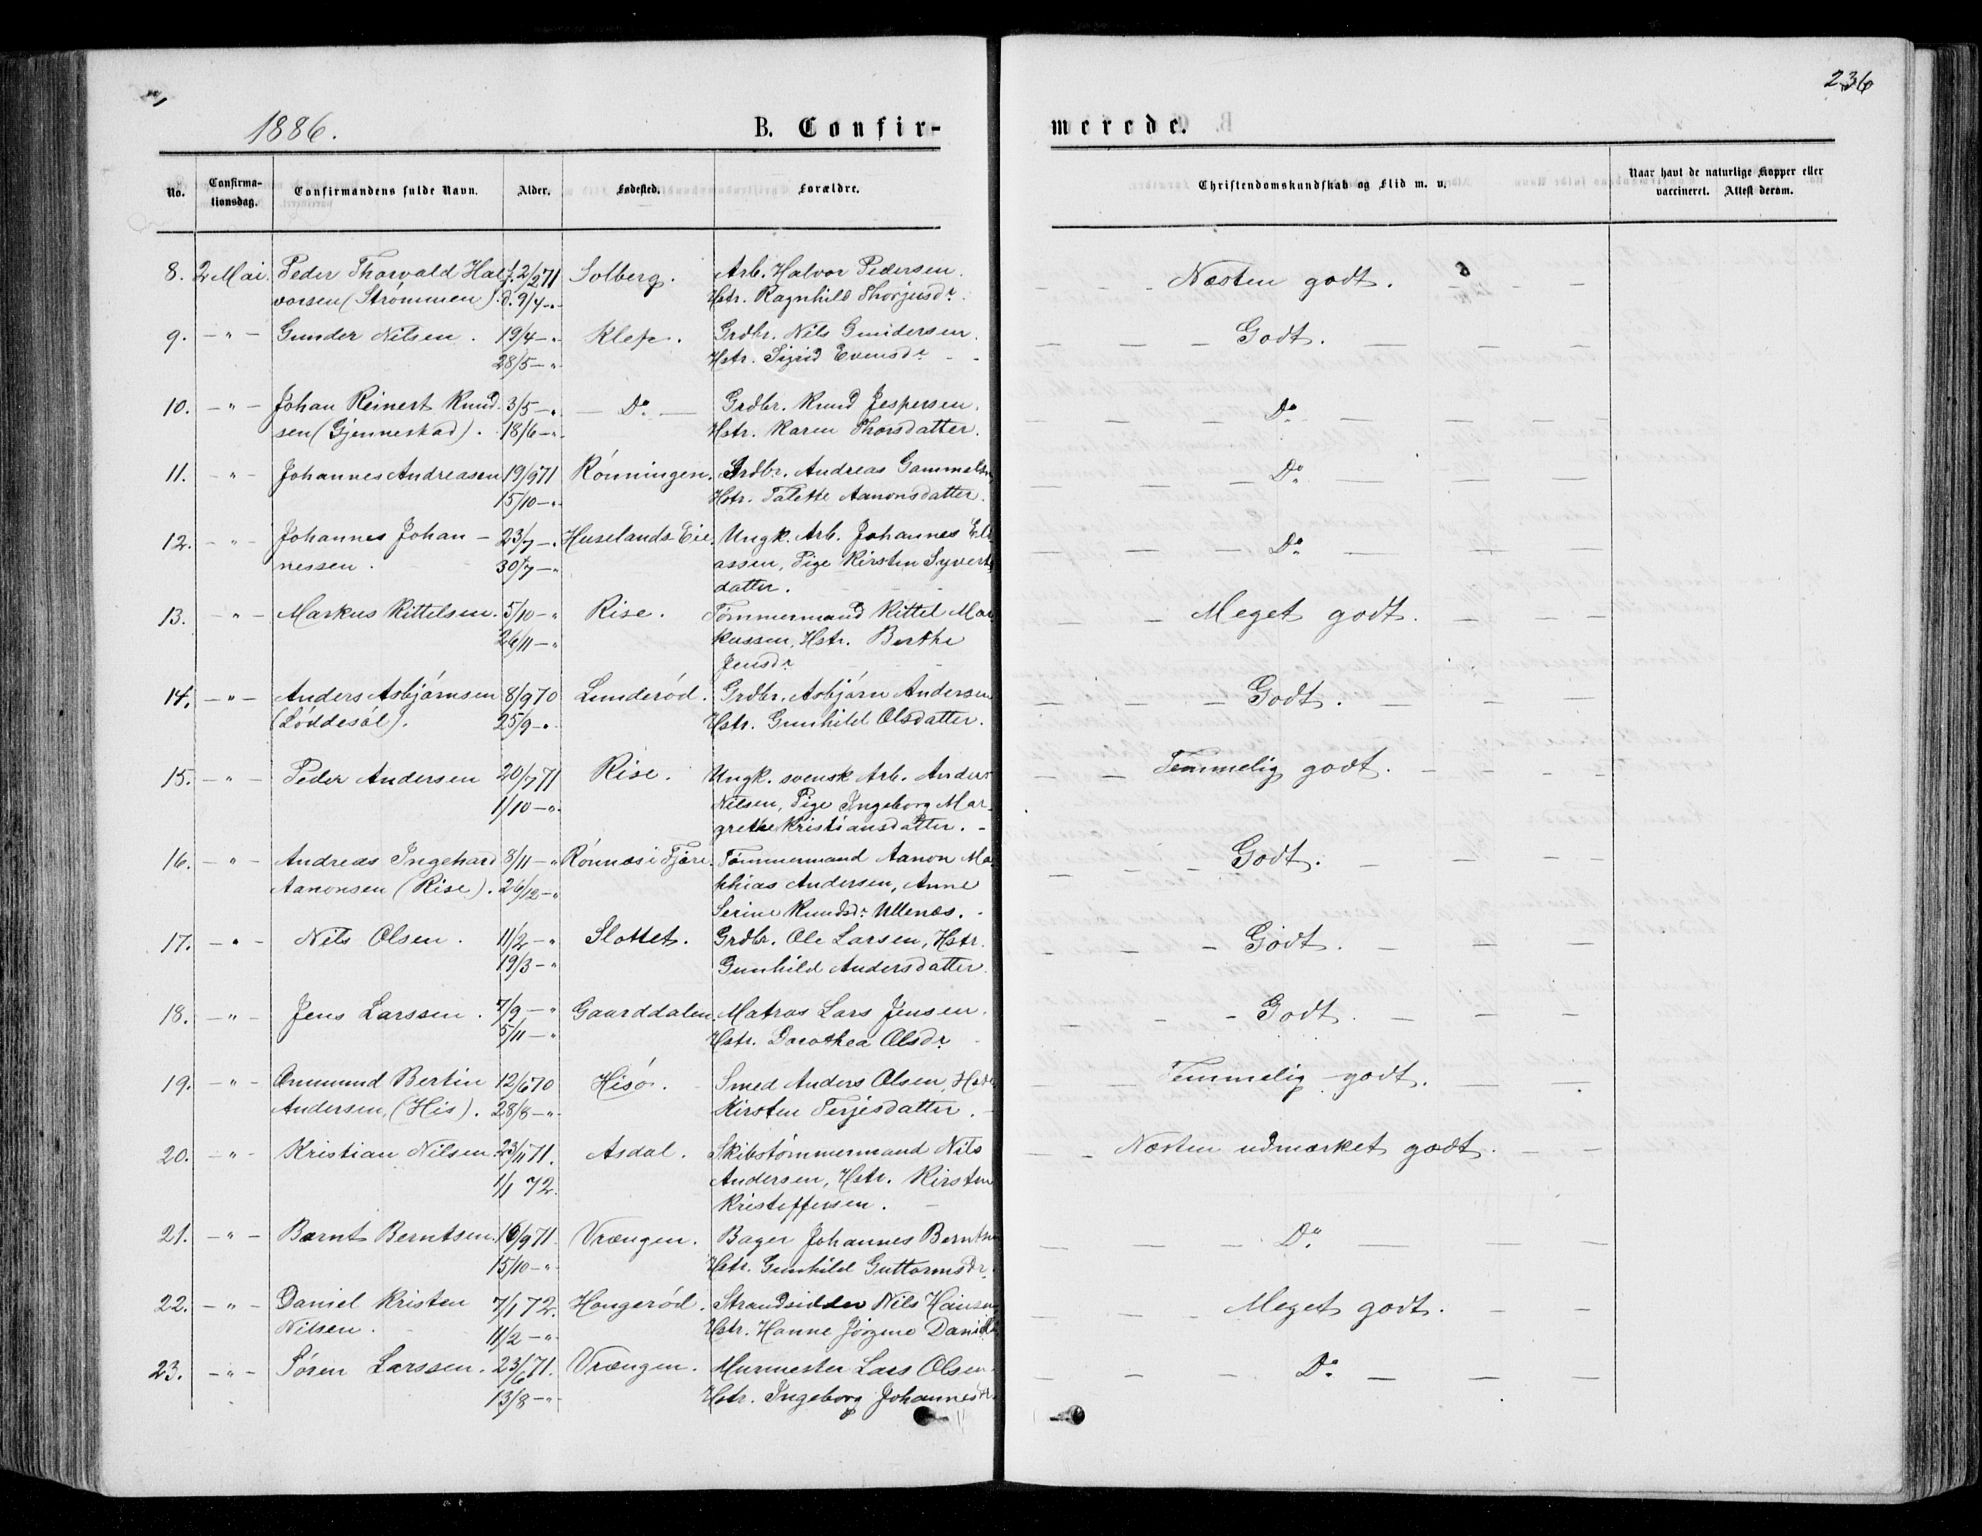 236
1886.
B. Confir-
merede.
No.
Confirma-
tionsdag.
Confirmandens fulde Navn.
Alder.
Fødested.
Forældre.
Christendomskundskab og Flid m. v.
Naar havt de naturlige Kopper eller
vaccineret. Attest derom.
8. 2 Mai. Peder Thorvald Hal f. 2/2 71 Solberg. Arb. Halvor Pedersen. - - - Næsten godt. - - -
vorsen (Strømmen). d. 9/4 - „ Hstr. Ragnhild Thorjusdr.
9. - „ - Gunder Nilsen. 19/4 - „ Klep. Grdbr. Nils Gundersen. - - - Godt. - - -
28/5 - „ Hstr. Sigrid Evensdr - -
10. - „ - Johan Reinert Knud 3/5 - „ - Do - Grdbr. Knud Jespersen. - - - Do - - -
sen (Gjennestad). 18/6 - „ Hstr. Karen Thorsdatter.
11. - „ - Johannes Andreasen 19/9 71 Rønningen. Grdbr. Andreas Gammelsen - - - Do - - -
15/10 - „ Hstr. Talette Aanonsdatter.
12. - „ - Johannes Johan - 23/7 - „ Huselands Eie. Ungk. Arb. Johannes Eli - - - Do - - -
nessen. 30/7 - „ assen, Pige Kirsten Syverts
datter.
13. - „ - Markus Kittelsen. 5/10 - „ Rise. Tømmermand Kittel Mar - - Meget godt. - - -
26/11 - „ kussen, Hstr. Berthe
Jensdr
14. - „ - Anders Asbjørnsen 8/9 70 Lunderød. Grdbr. Asbjørn Andersen - - - Godt. - - -
(Løddesøl). 25/9 - „ Hstr. Gunhild Olsdatter.
15. - „ - Peder Andersen 20/7 71 Rise. Ungk. svensk Arb. Anders - - Temmelig godt. - - -
1/10 - „ Nilsen, Pige Ingeborg Mar-
grethe Kristiansdatter. -
16. - „ - Andreas Ingehard 8/11 - „ Rønnæs i Fjære. Tømmermand Aanon Ma- - - - Godt. - - -
Aanonsen (Rise). 26/12 - „ thias Andersen, Anne
Serine Knudsdr Ullenæs. -
17. - „ - Nils Olsen. 11/2 - „ Slottet. Grdbr. Ole Larsen, Hstr. - - - Godt. - - -
19/3 - „ Gunhild Andersdatter.
18. - „ - Jens Larssen. 7/9 - „ Gaarddalen. Matros Lars Jensen. - - - Godt. - - -
5/11 - „ Hstr. Dorothea Olsdr -
19. - „ - Ommund Bertin 12/6 70 Hisø. Smed Anders Olsen, Hstr. - Temmelig godt. - - -
Andersen, (His). 28/8 - „ Kirsten Terjesdatter. -
20. - „ - Kristian Nilsen. 23/11 71. Asdal. Skibstømmermand Nils - - Næsten udmærket godt. - -
1/1 72. Andersen, Hstr. Kirsten
Kristoffersen. -
21. - „ - Bernt Berntsen. 16/9 71 Vrængen. Bager Johannes Berntsen - - - Do - - -
15/10 - „ Hstr. Gunhild Guttormsdr.
22. - „ - Daniel Kristen 7/1 72. Hougerød. Strandsidder Nils Hansen - - Meget godt. - -
Nilsen. 11/2 - „ Hstr. Hanne Jørgine Daniels
23. - „ - Søren Larssen. 23/6 71. Vrængen. Murmester Lars Olsen. - - - Do - - -
13/8 - „ Hstr. Ingeborg Johannesdr.